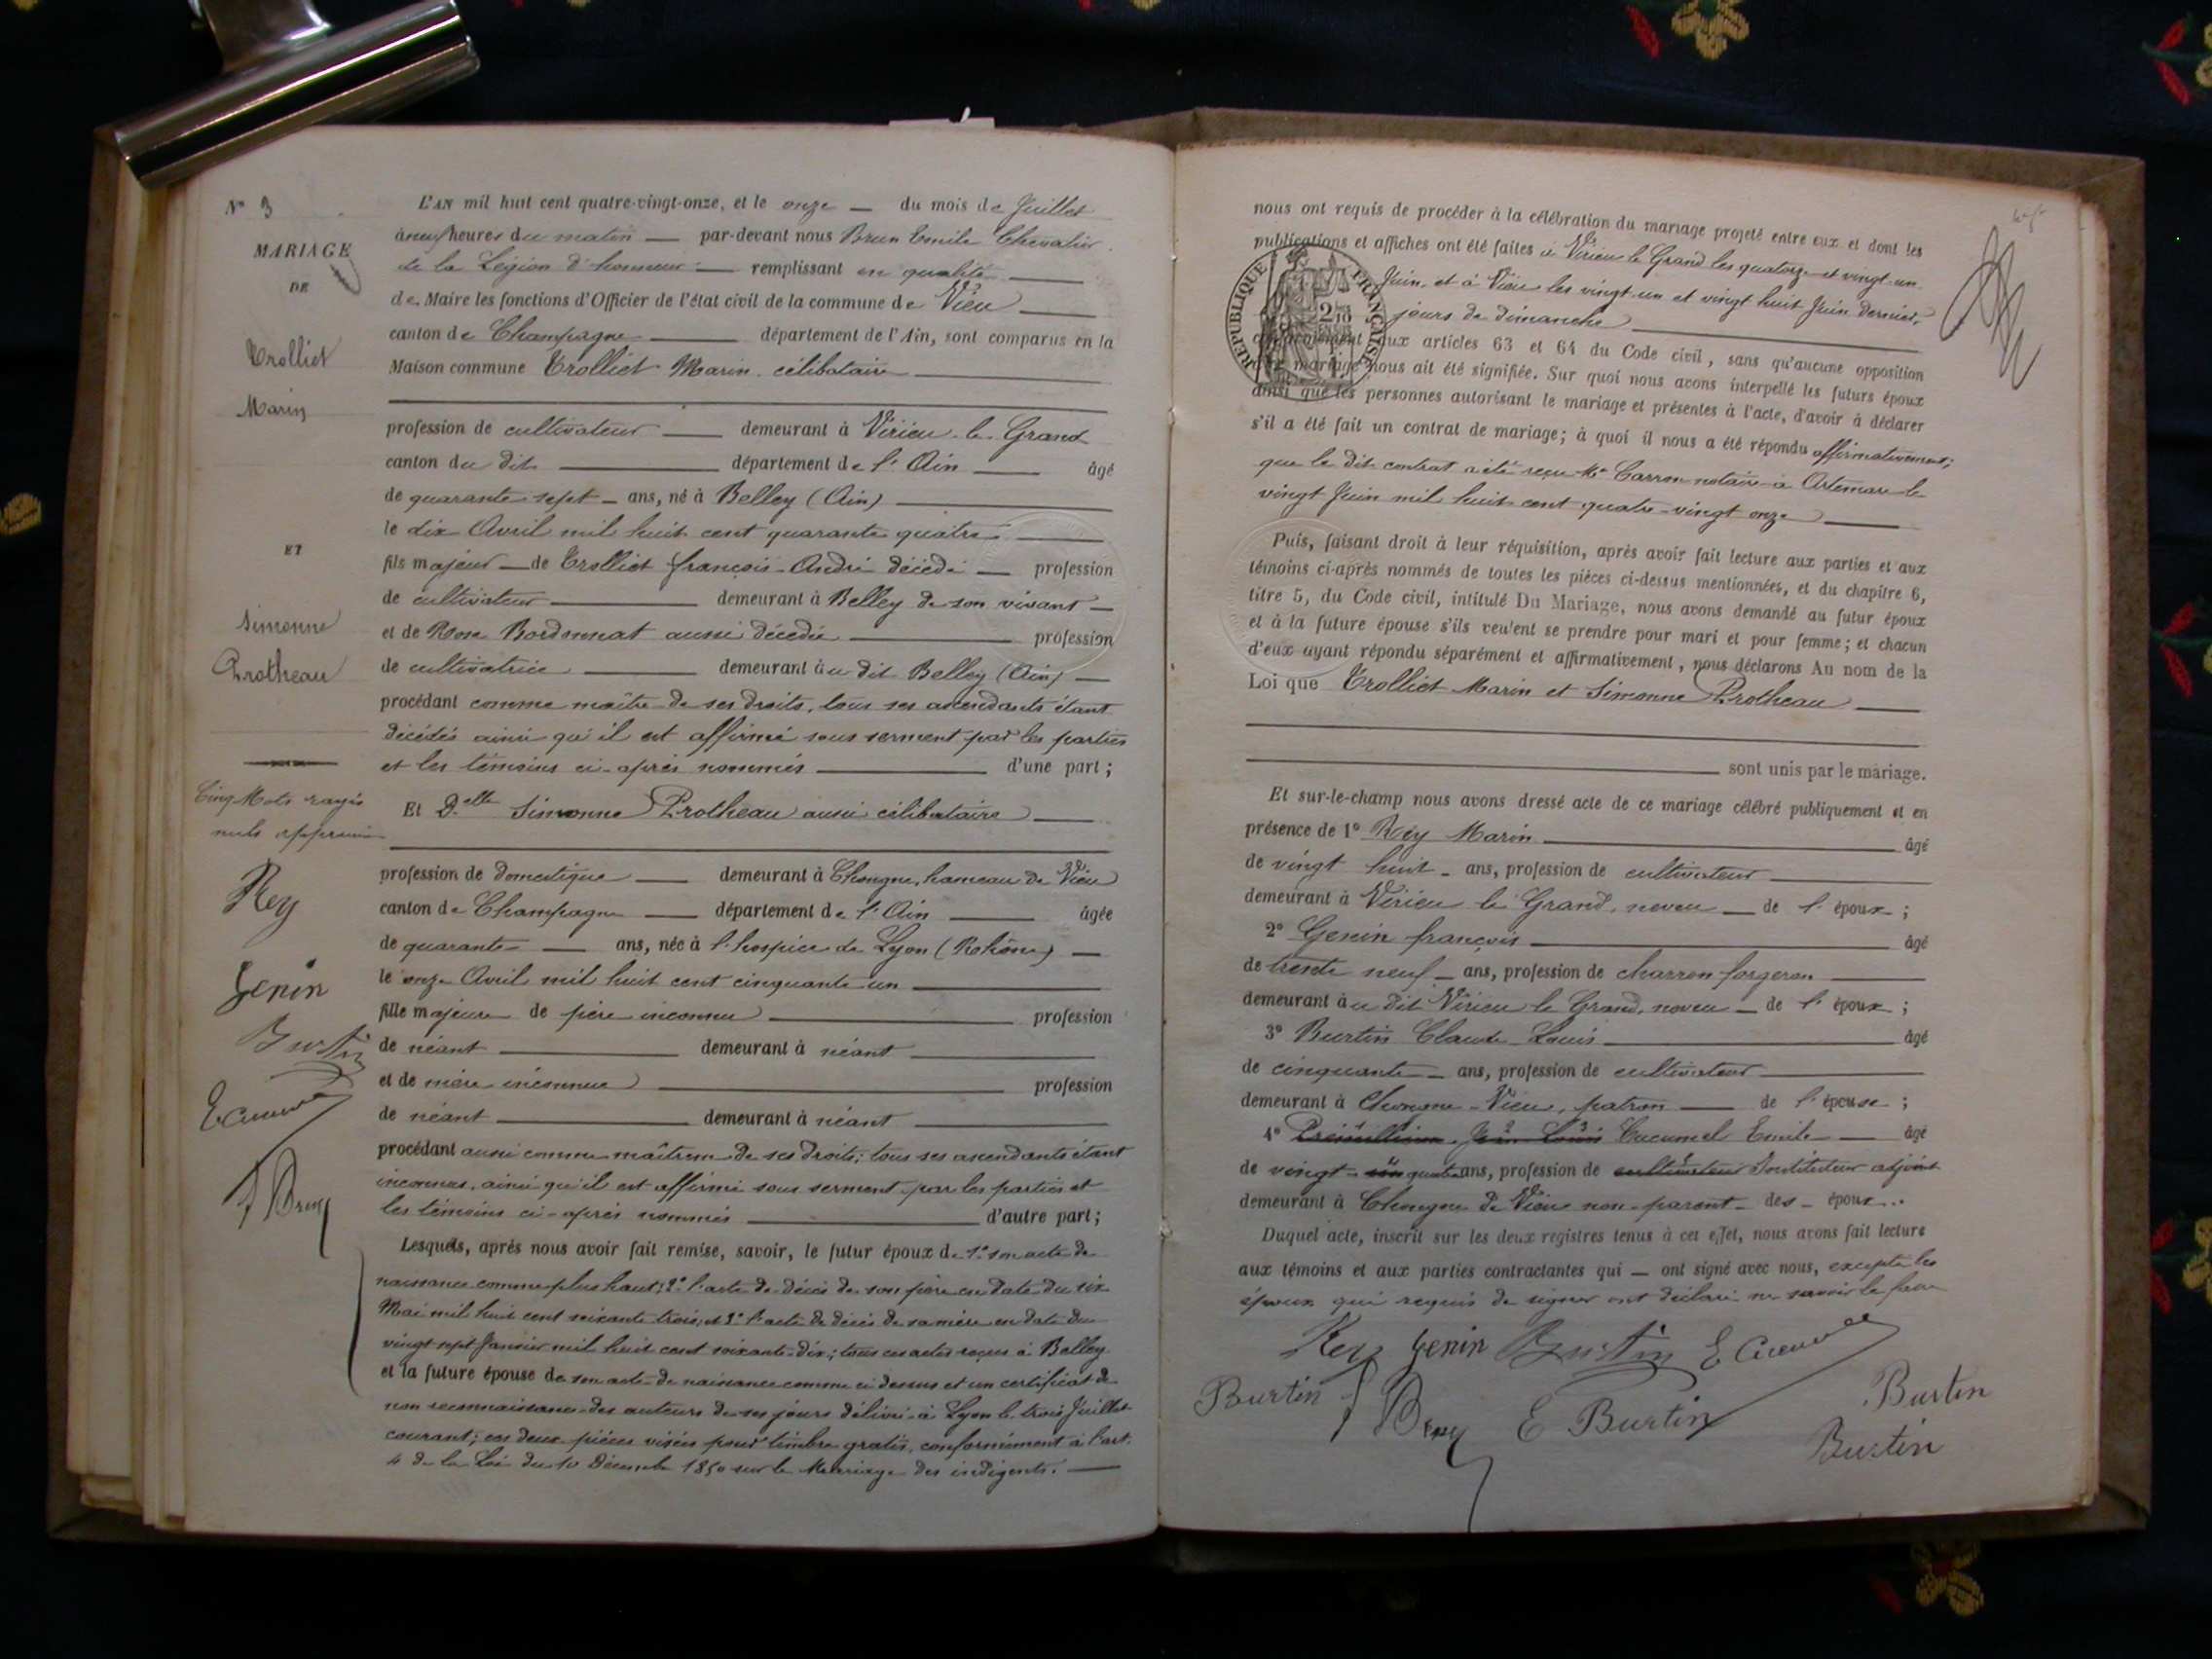 N° 3
MARIAGE
DE
Trolliet
Marin
ET
Simonne
Protheau
Cinq Mots rayés
nuls
Rey
Genin
Burtin
L'AN mil huit cent quatre-vingt-onze, et le onze — du mois de Juillet
à neuf heures du matin — par-devant nous Brun Emile Chevalier
de la Légion d'honneur — remplissant en qualité
de Maire les fonctions d'Officier de l'état civil de la commune de Vieu
canton de Champagne département de l'Ain, sont comparus en la
Maison commune Trolliet Marin célibataire
profession de cultivateur demeurant à Virieu-le-Grand
canton du dit département de l'Ain âgé
de quarante sept ans, né à Belley (Ain)
le dix Avril mil huit cent quarante quatre
fils majeur de Trolliet françois-André décédé profession
de cultivateur demeurant à Belley de son vivant
et de Rose Bordonnat aussi décédée profession
de cultivatrice demeurant au dit Belley (Ain)
procédant comme maître de ses droits, tous ses ascendants étant
décédés ainsi qu'il est affirmé sous serment par les parties
et les témoins ci-après nommés d'une part;
Et Delle Simonne Protheau aussi célibataire
profession de domestique demeurant à Chongne, hameau de Vieu
canton de Champagne département de l'Ain âgée
de quarante ans, née à l'hospice de Lyon (Rohône)
le onze Avril mil huit cent cinquante un
fille majeure de père inconnu profession
de néant demeurant à néant
et de mère inconnue profession
de néant demeurant à néant
procédant aussi comme maîtresse de ses droits; tous ses ascendants étant
inconnus, ainsi qu'il est affirmé sous serment par les parties et
les témoins ci-après nommés d'autre part;
Lesquels, après nous avoir fait remise, savoir, le futur époux de 1° son acte de
naissance comme plus haut; 2° l'acte de décès de son père en date du six
Mai mil huit cent soixante trois; et 3° l'acte de décès de sa mère en date du
vingt sept Janvier mil huit cent soixante-dix; tous ces actes reçus à Belley
et la future épouse de son acte de naissance comme ci dessus et un certificat de
non reconnaissance des auteurs de ses jours délivré à Lyon le trois Juillet
courant; ces deux pièces visées pour timbre gratis, conformément à l'art.
4 de la Loi du 10 Décembre 1850 sur le Mariage des indigents.
nous ont requis de procéder à la célébration du mariage projeté entre eux et dont les
publications et affiches ont été faites à Virieu le Grand les quatorze et vingt-un
Juin, et à Vieu les vingt-un et vingt huit Juin dernier,
jours de dimanche
RÉPUBLIQUE FRANÇAISE
conformément aux articles 63 et 64 du Code civil, sans qu'aucune opposition
mariage nous ait été signifiée. Sur quoi nous avons interpellé les futurs époux
ainsi que les personnes autorisant le mariage et présentes à l'acte, d'avoir à déclarer
s'il a été fait un contrat de mariage; à quoi il nous a été répondu affirmativement;
que le dit contrat a été reçu Me Carron notaire à Artemare le
vingt Juin mil huit cent quatre-vingt onze
Puis, faisant droit à leur réquisition, après avoir fait lecture aux parties et aux
témoins ci-après nommés de toutes les pièces ci-dessus mentionnées, et du chapitre 6,
titre 5, du Code civil, intitulé Du Mariage, nous avons demandé au futur époux
et à la future épouse s'ils veulent se prendre pour mari et pour femme; et chacun
d'eux ayant répondu séparément et affirmativement, nous déclarons Au nom de la
Loi que Trolliet Marin et Simonne Protheau
sont unis par le mariage.
Et sur-le-champ nous avons dressé acte de ce mariage célébré publiquement et en
présence de 1° Rey Marin âgé
de vingt huit ans, profession de cultivateur
demeurant à Virieu le Grand, neveu de l'époux;
2° Genin françois âgé
de trente neuf ans, profession de charron forgeron
demeurant au dit Virieu le Grand, neveu de l'époux;
3° Burtin Claude-Louis âgé
de cinquante ans, profession de cultivateur
demeurant à Chongne-Vieu, patron de l'épouse;
4° Jean Louis Cucumel Emile âgé
de vingt quatre ans, profession de cultivateur Instituteur adjoint
demeurant à Chongne de Vieu non-parent des époux.
Duquel acte, inscrit sur les deux registres tenus à cet effet, nous avons fait lecture
aux témoins et aux parties contractantes qui ont signé avec nous, excepté les
époux qui requis de signer ont déclaré ne savoir le faire
Rey Genin Burtin
Burtin E Burtin Burtin
Burtin